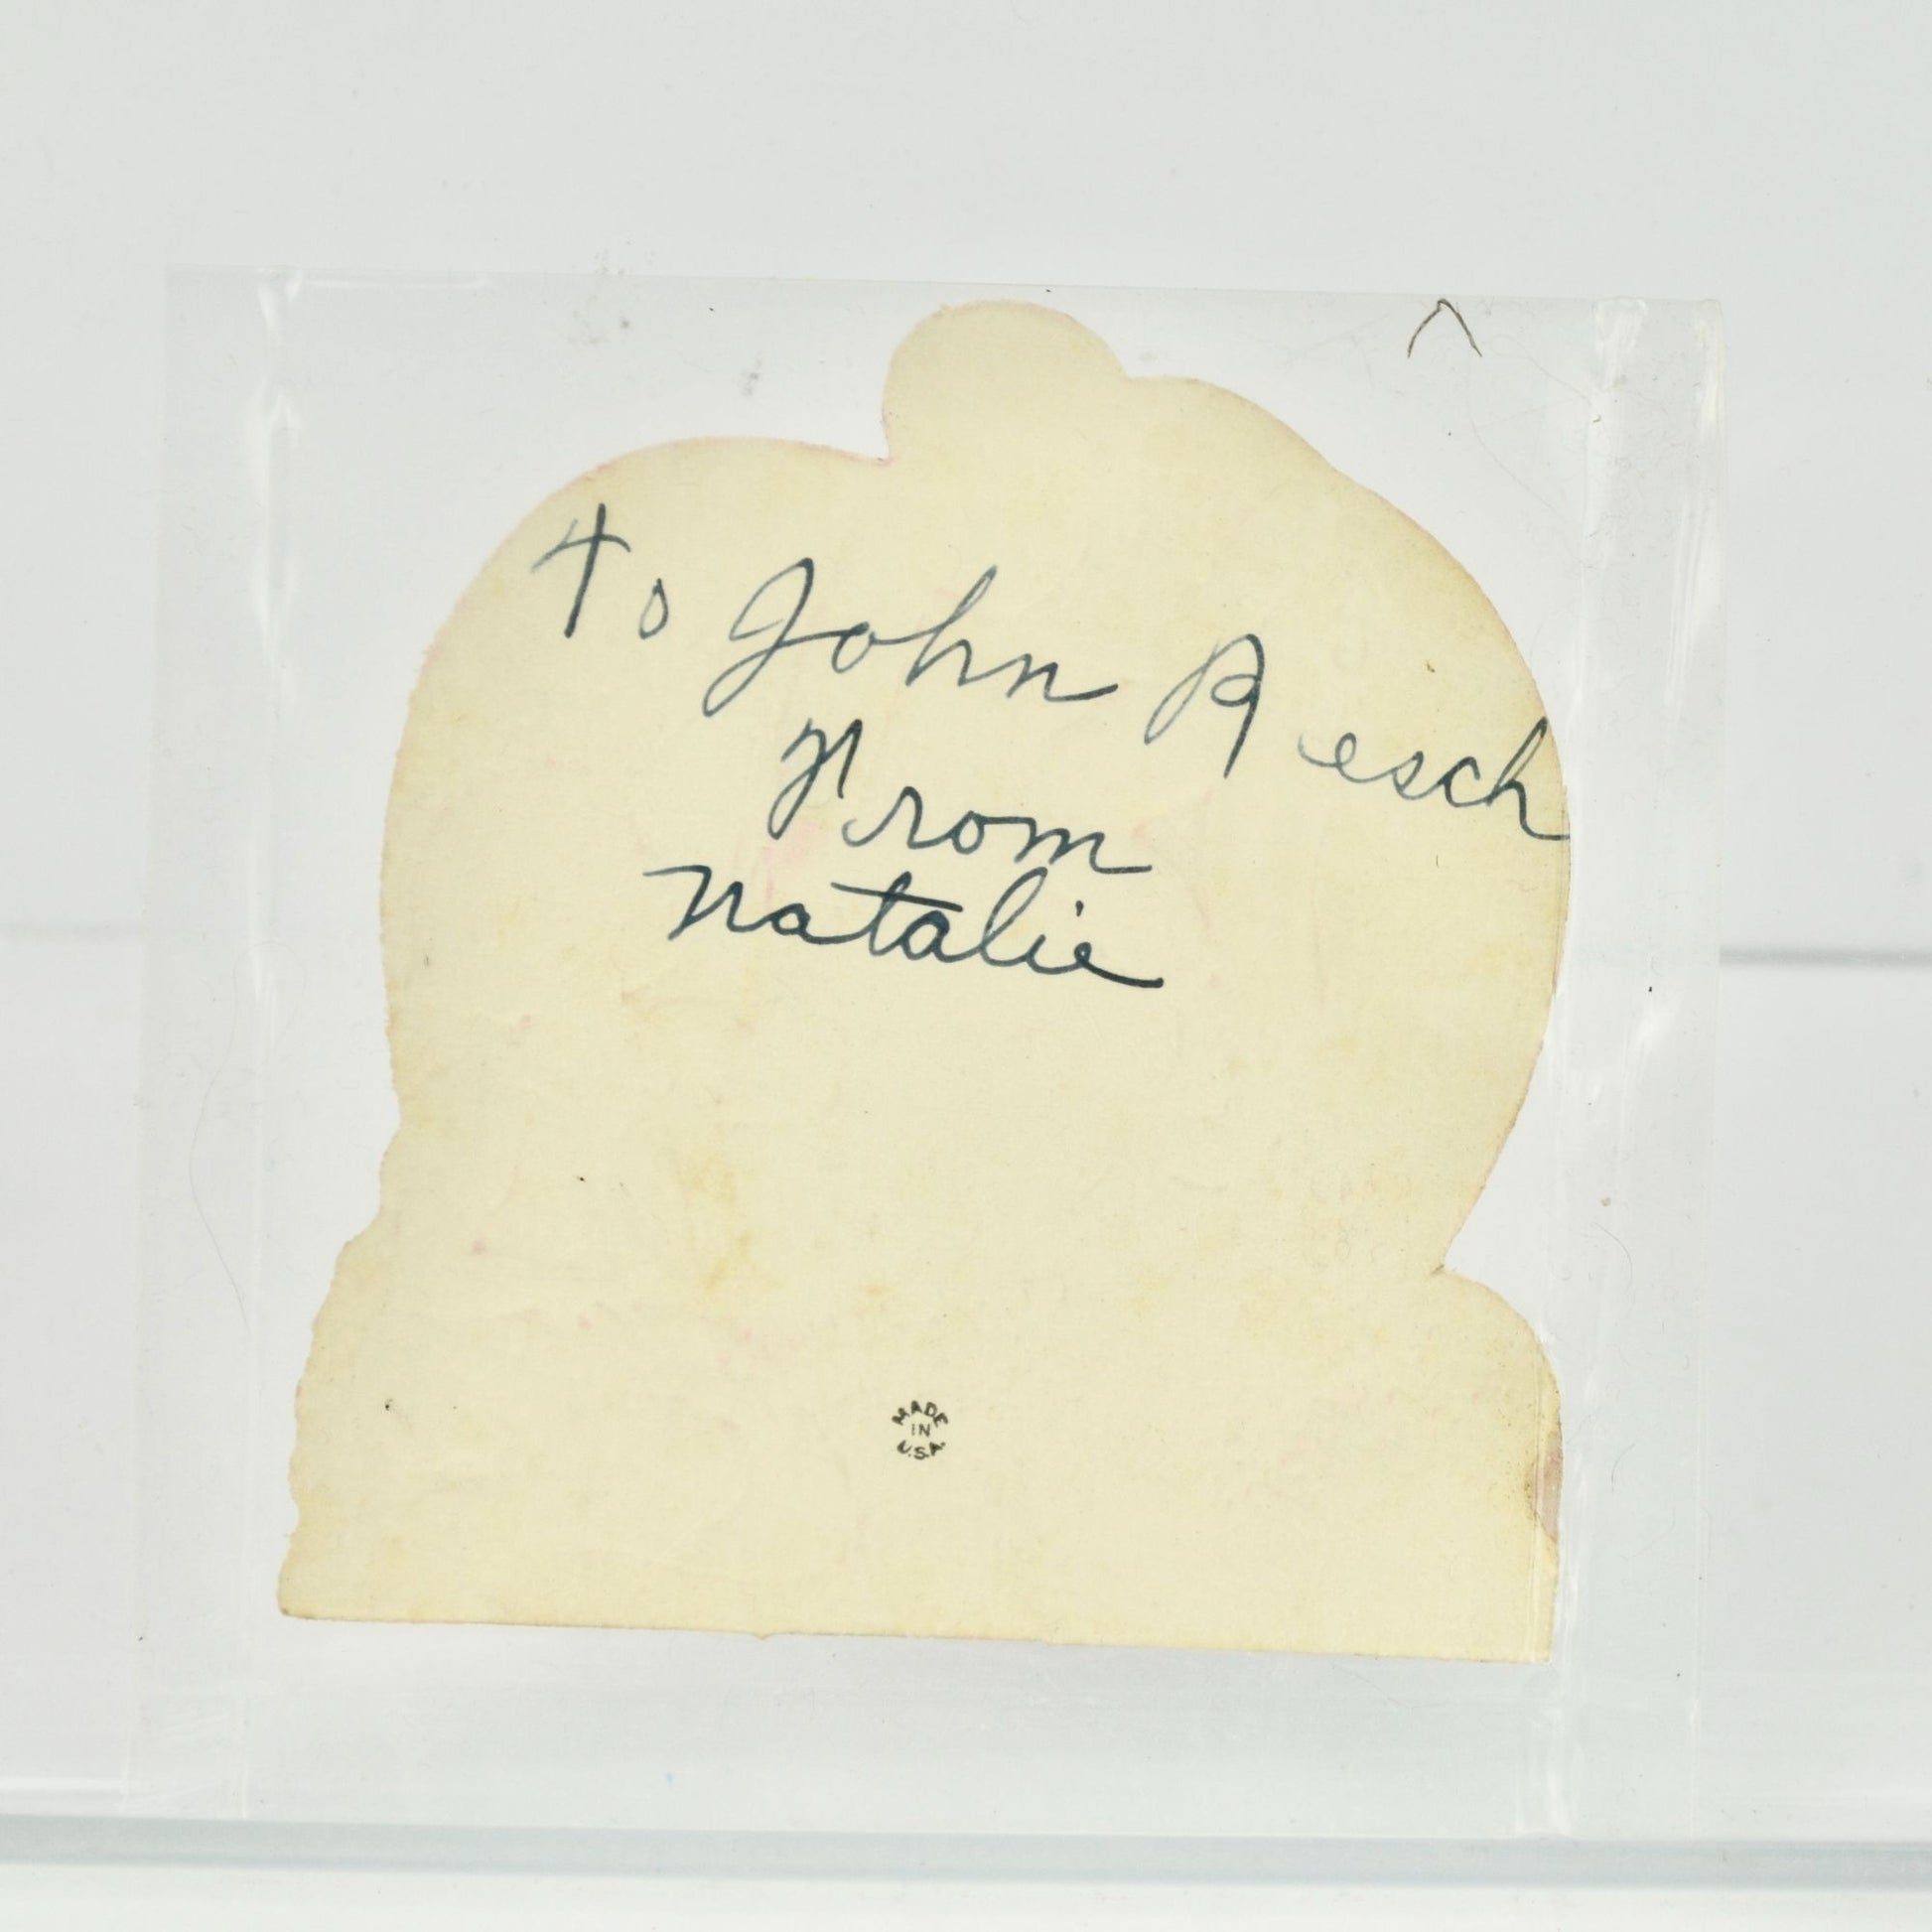 To John Resch
From
Natalie
MADE
IN
U.S.A.